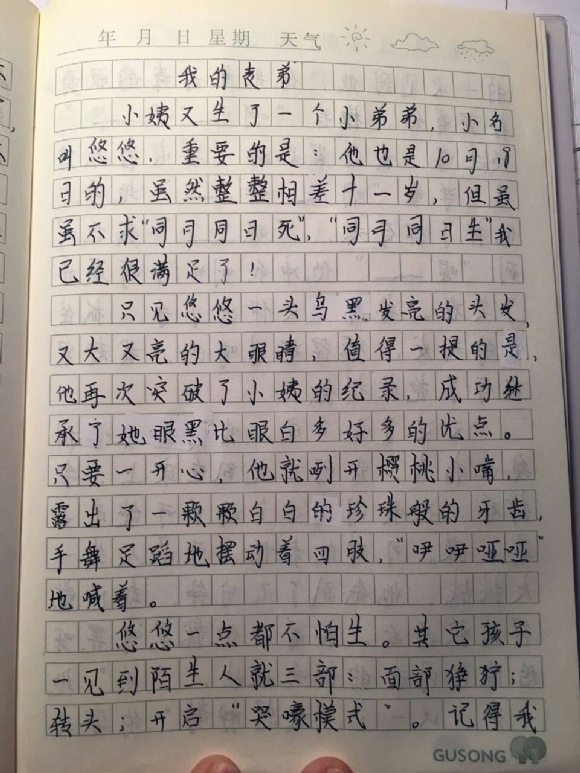 年 月 日 星期 天气
我的表弟
小姨又生了一个小弟弟，小名
叫悠悠，重要的是：他也是10月18
日的，虽然整整相差十一岁，但虽
虽不求“同月同日死”，“同月同日生”我
已经很满足了！
只见悠悠一头乌黑发亮的头发，
又大又亮的大眼睛，值得一提的是，
他再次突破了小姨的纪录，成功继
承了她眼黑比眼白多好多的优点。
只要一开心，他就咧开樱桃小嘴，
露出了一颗颗白白的珍珠般的牙齿，
手舞足蹈地摆动着四肢，“咿咿哑哑”
地喊着。
悠悠一点都不怕生。其它孩子
一见到陌生人就三部：面部狰狞；
转头；开启“哭嚎模式”。记得我
GUSONG